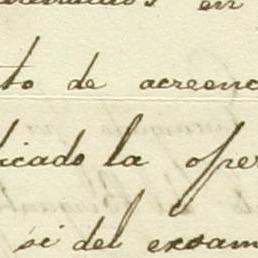 en
to de acreenc
icado la ope
si del exsam